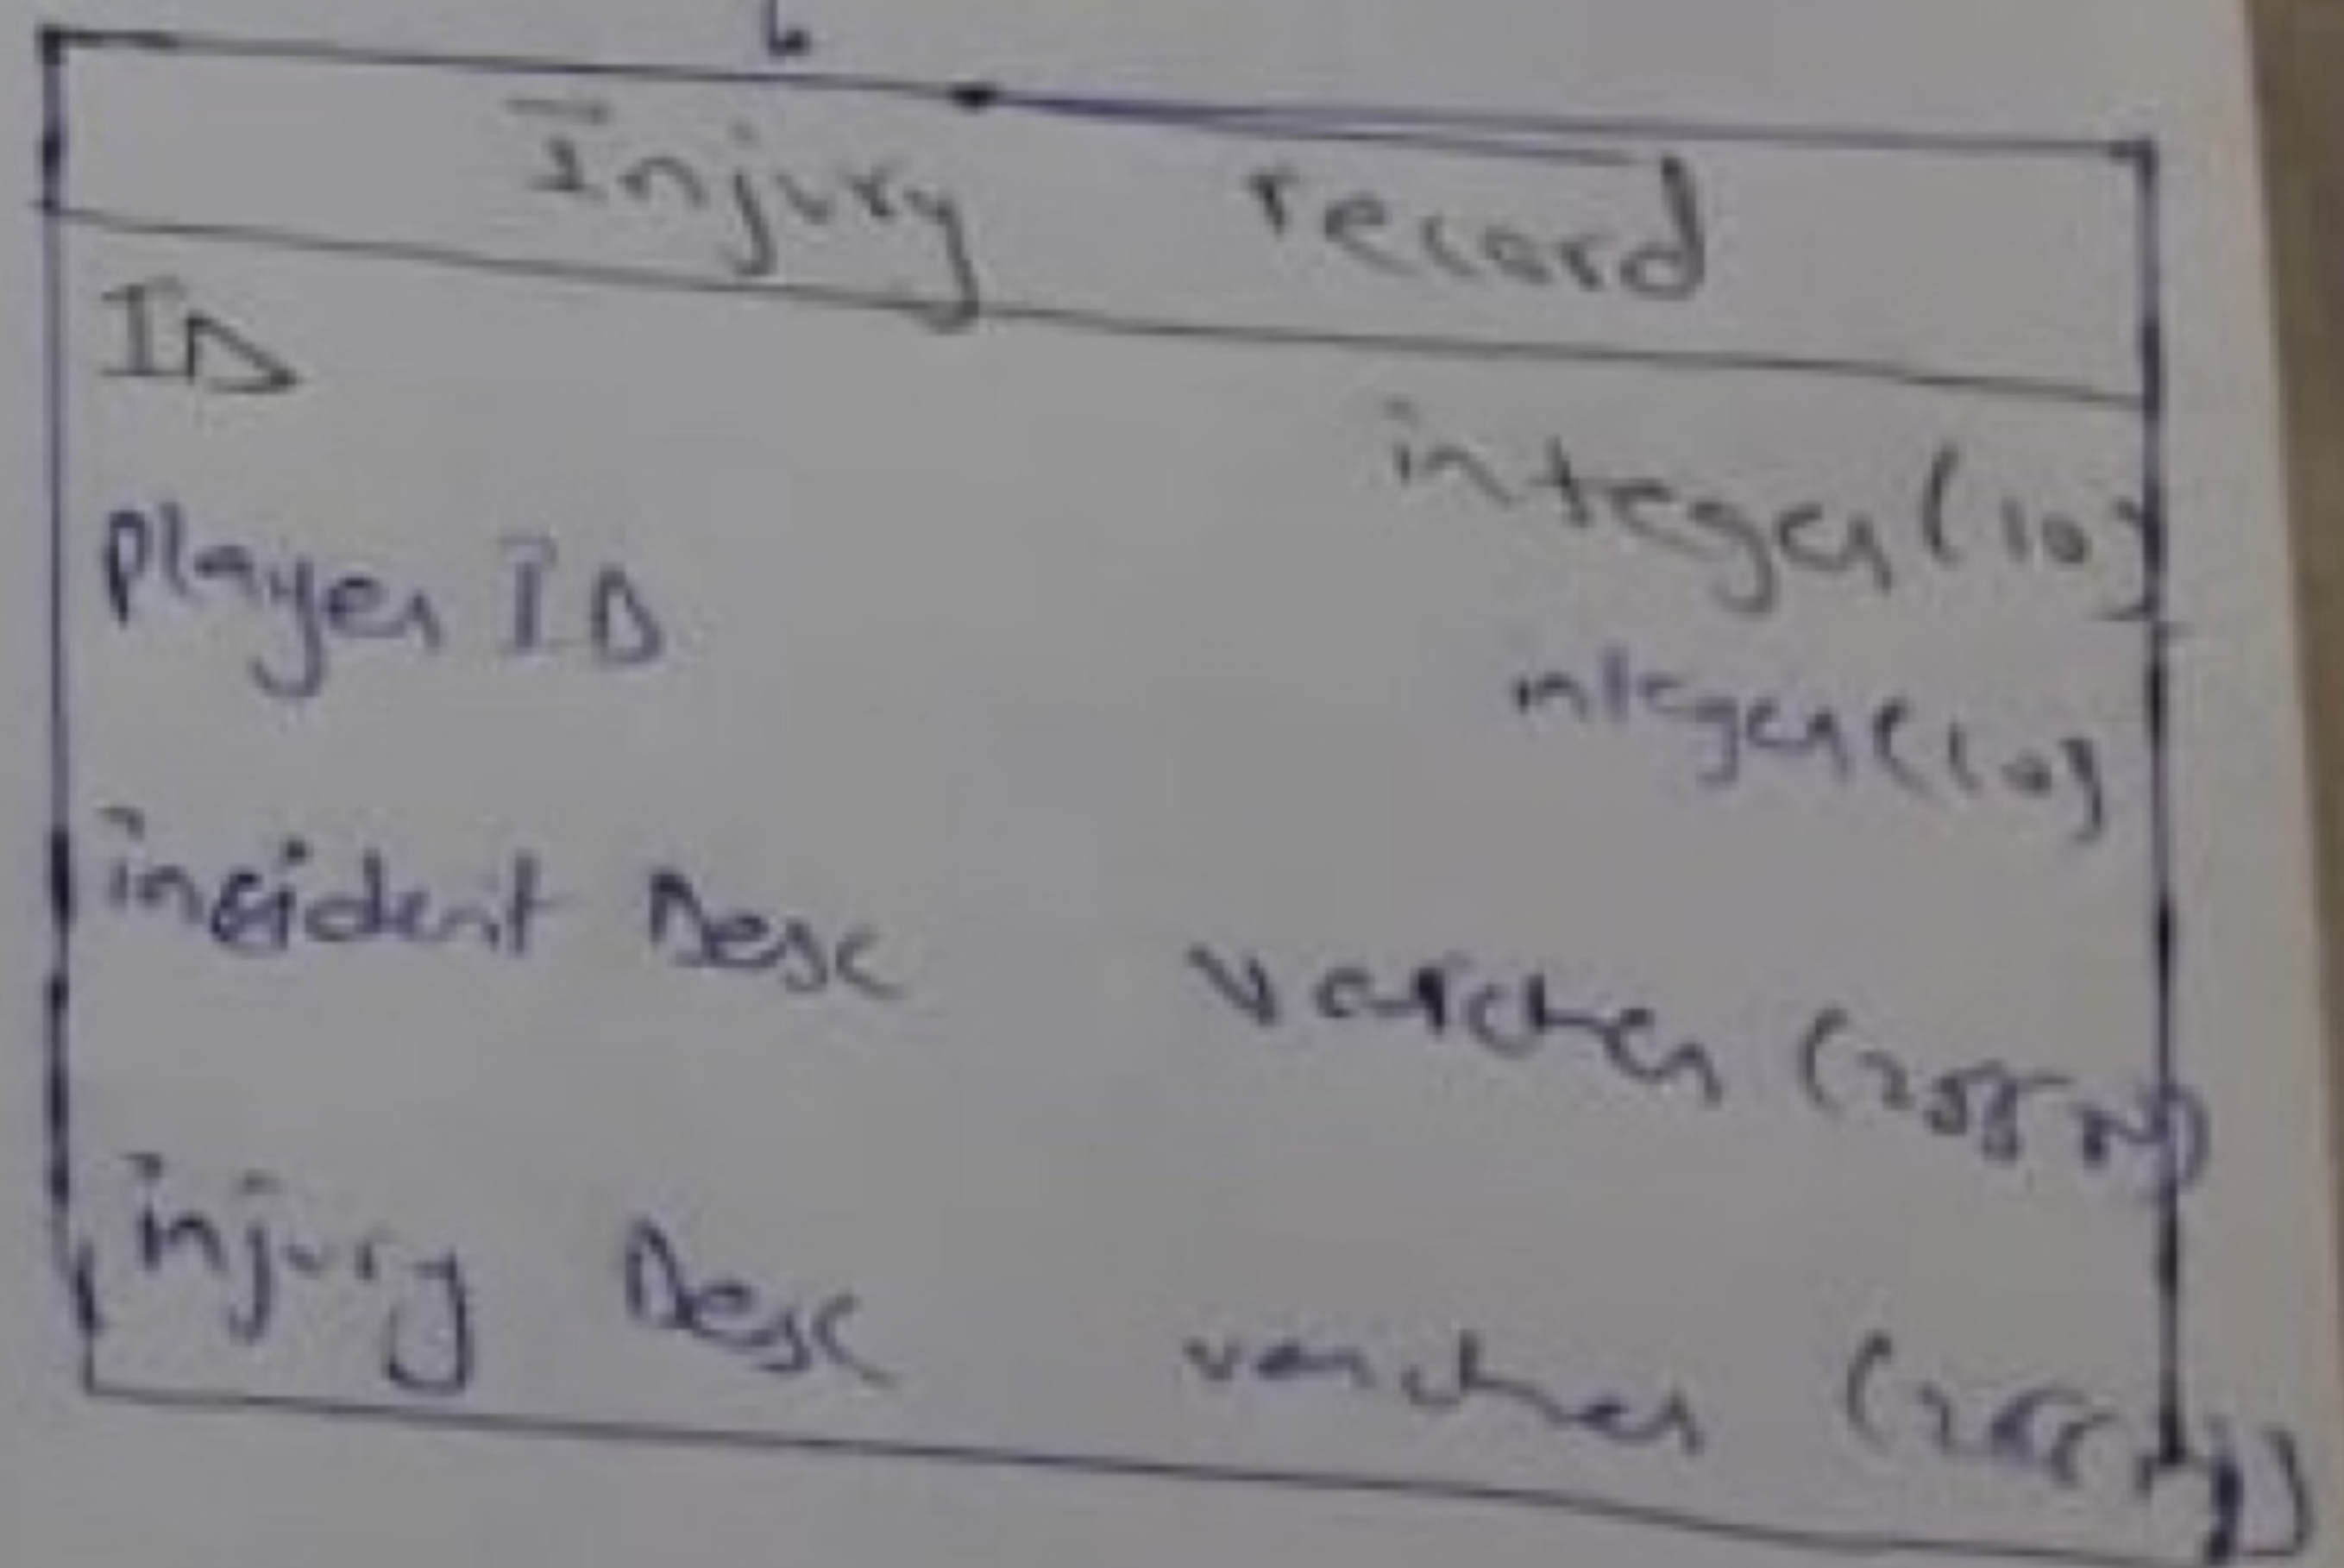 Injury record
ID integer(10)
player ID integer(10)
incident Desc varchar (255
injury Desc varchar (255